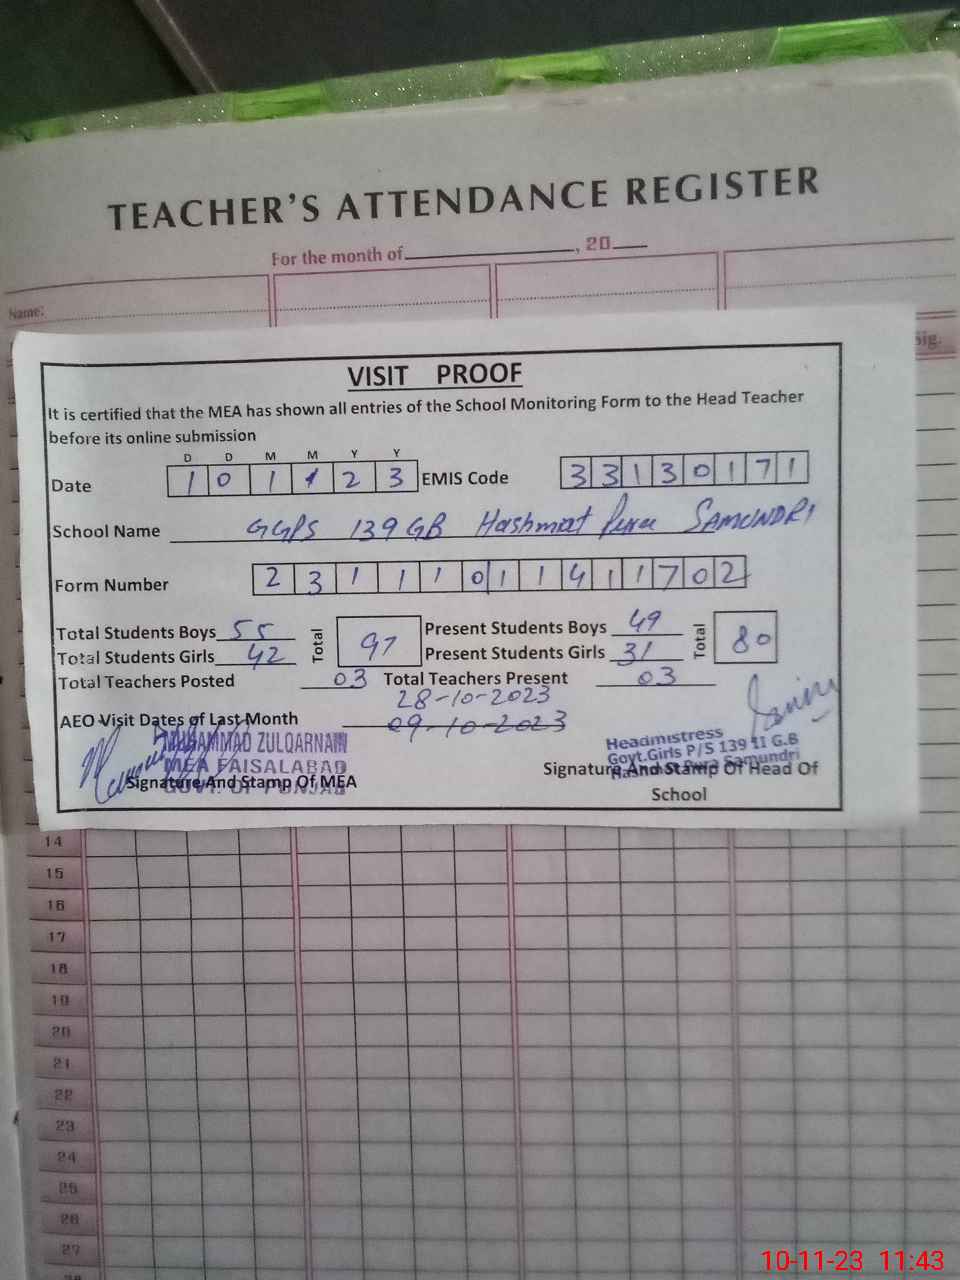 TEACHER'S ATTENDANCE REGISTER
For the month of ________, 20___
Name:
Sig.
VISIT PROOF
It is certified that the MEA has shown all entries of the School Monitoring Form to the Head Teacher
before its online submission
D D M M Y Y
Date 1 0 1 1 2 3 EMIS Code 3 3 1 3 0 1 7 1
School Name GGPS 139 GB Hashmat Pura SAMUNDRI
Form Number 2 3 1 1 1 0 1 1 4 1 1 7 0 2
Total Students Boys 55 Total 97 Present Students Boys 49 Total 80
Total Students Girls 42 Present Students Girls 31
Total Teachers Posted 03 Total Teachers Present 03
28-10-2023
AEO Visit Dates of Last Month 09-10-2023
MUHAMMAD ZULQARNAIN
MEA FAISALABAD
GOVT. OF PUNJAB
Signature And Stamp Of MEA
Headmistress
Govt.Girls P/S 139 G.B
Hashmat Pura Samundri
Signature And Stamp Of Head Of
School
14
15
16
17
18
19
20
21
22
23
24
25
26
27
28
10-11-23 11:43